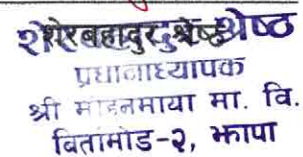 शेरबहादुर श्रेष्ठ
प्रधानाध्यापक
श्री मोहनमाया मा. वि.
विर्तामोड-२, झापा